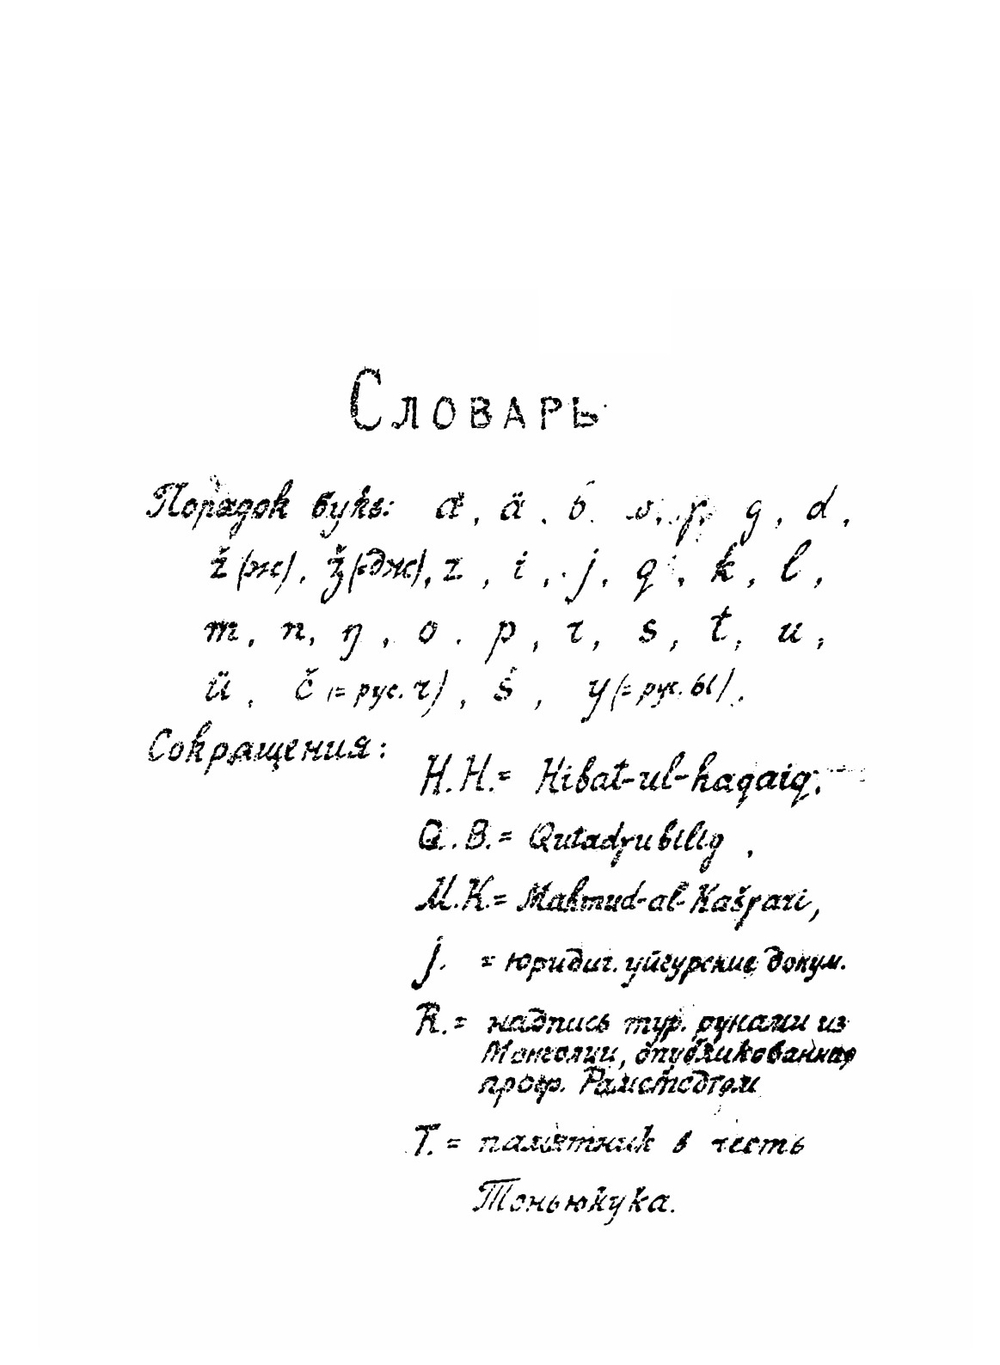 Словарь
Порядок букв: a, ä, b, v, γ, g, d,
ž (ж), ǯ (=дж), z, i, j, q, k, l,
m, n, ŋ, o, p, r, s, t, u,
ü, č (= рус. ч), š, y (= рус. ы).
Сокращения:
H.H. = Hibat-ul-haqaiq,
Q.B. = Qutadγu bilig,
M.K. = Mahmud-al-Kašγari,
J. = юридич. уйгурские докум.
R. = надпись тур. рунами из
Монголии, опубликованная
проф. Рамстедтом
T. = памятник в честь
Тоньюкука.